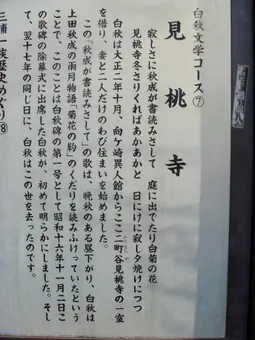 白秋文学コース⑦
見桃寺
寂しさに秋成が書読みさして 庭に出でたり白菊の花
見桃寺冬さりくればあかあかと 日にけに寂し夕焼けにつつ
白秋は大正二年十月、向ケ崎異人館からここ二町谷見桃寺の一室
を借り、妻と二人だけのわび住まいを始めました。
この「秋成が書読みさして」の歌は、晩秋のある昼下がり、白秋は
上田秋成の雨月物語「菊花の約」のくだりを読みふけっていたという
ことで、このことは白秋碑の第一号として昭和十六年十一月二日こ
の歌碑の除幕式に出席した白秋が、初めて明らかにしました。そし
て、翌十七年の同じ日に、白秋はこの世を去ったのです。
三浦一族歴史めぐり⑧